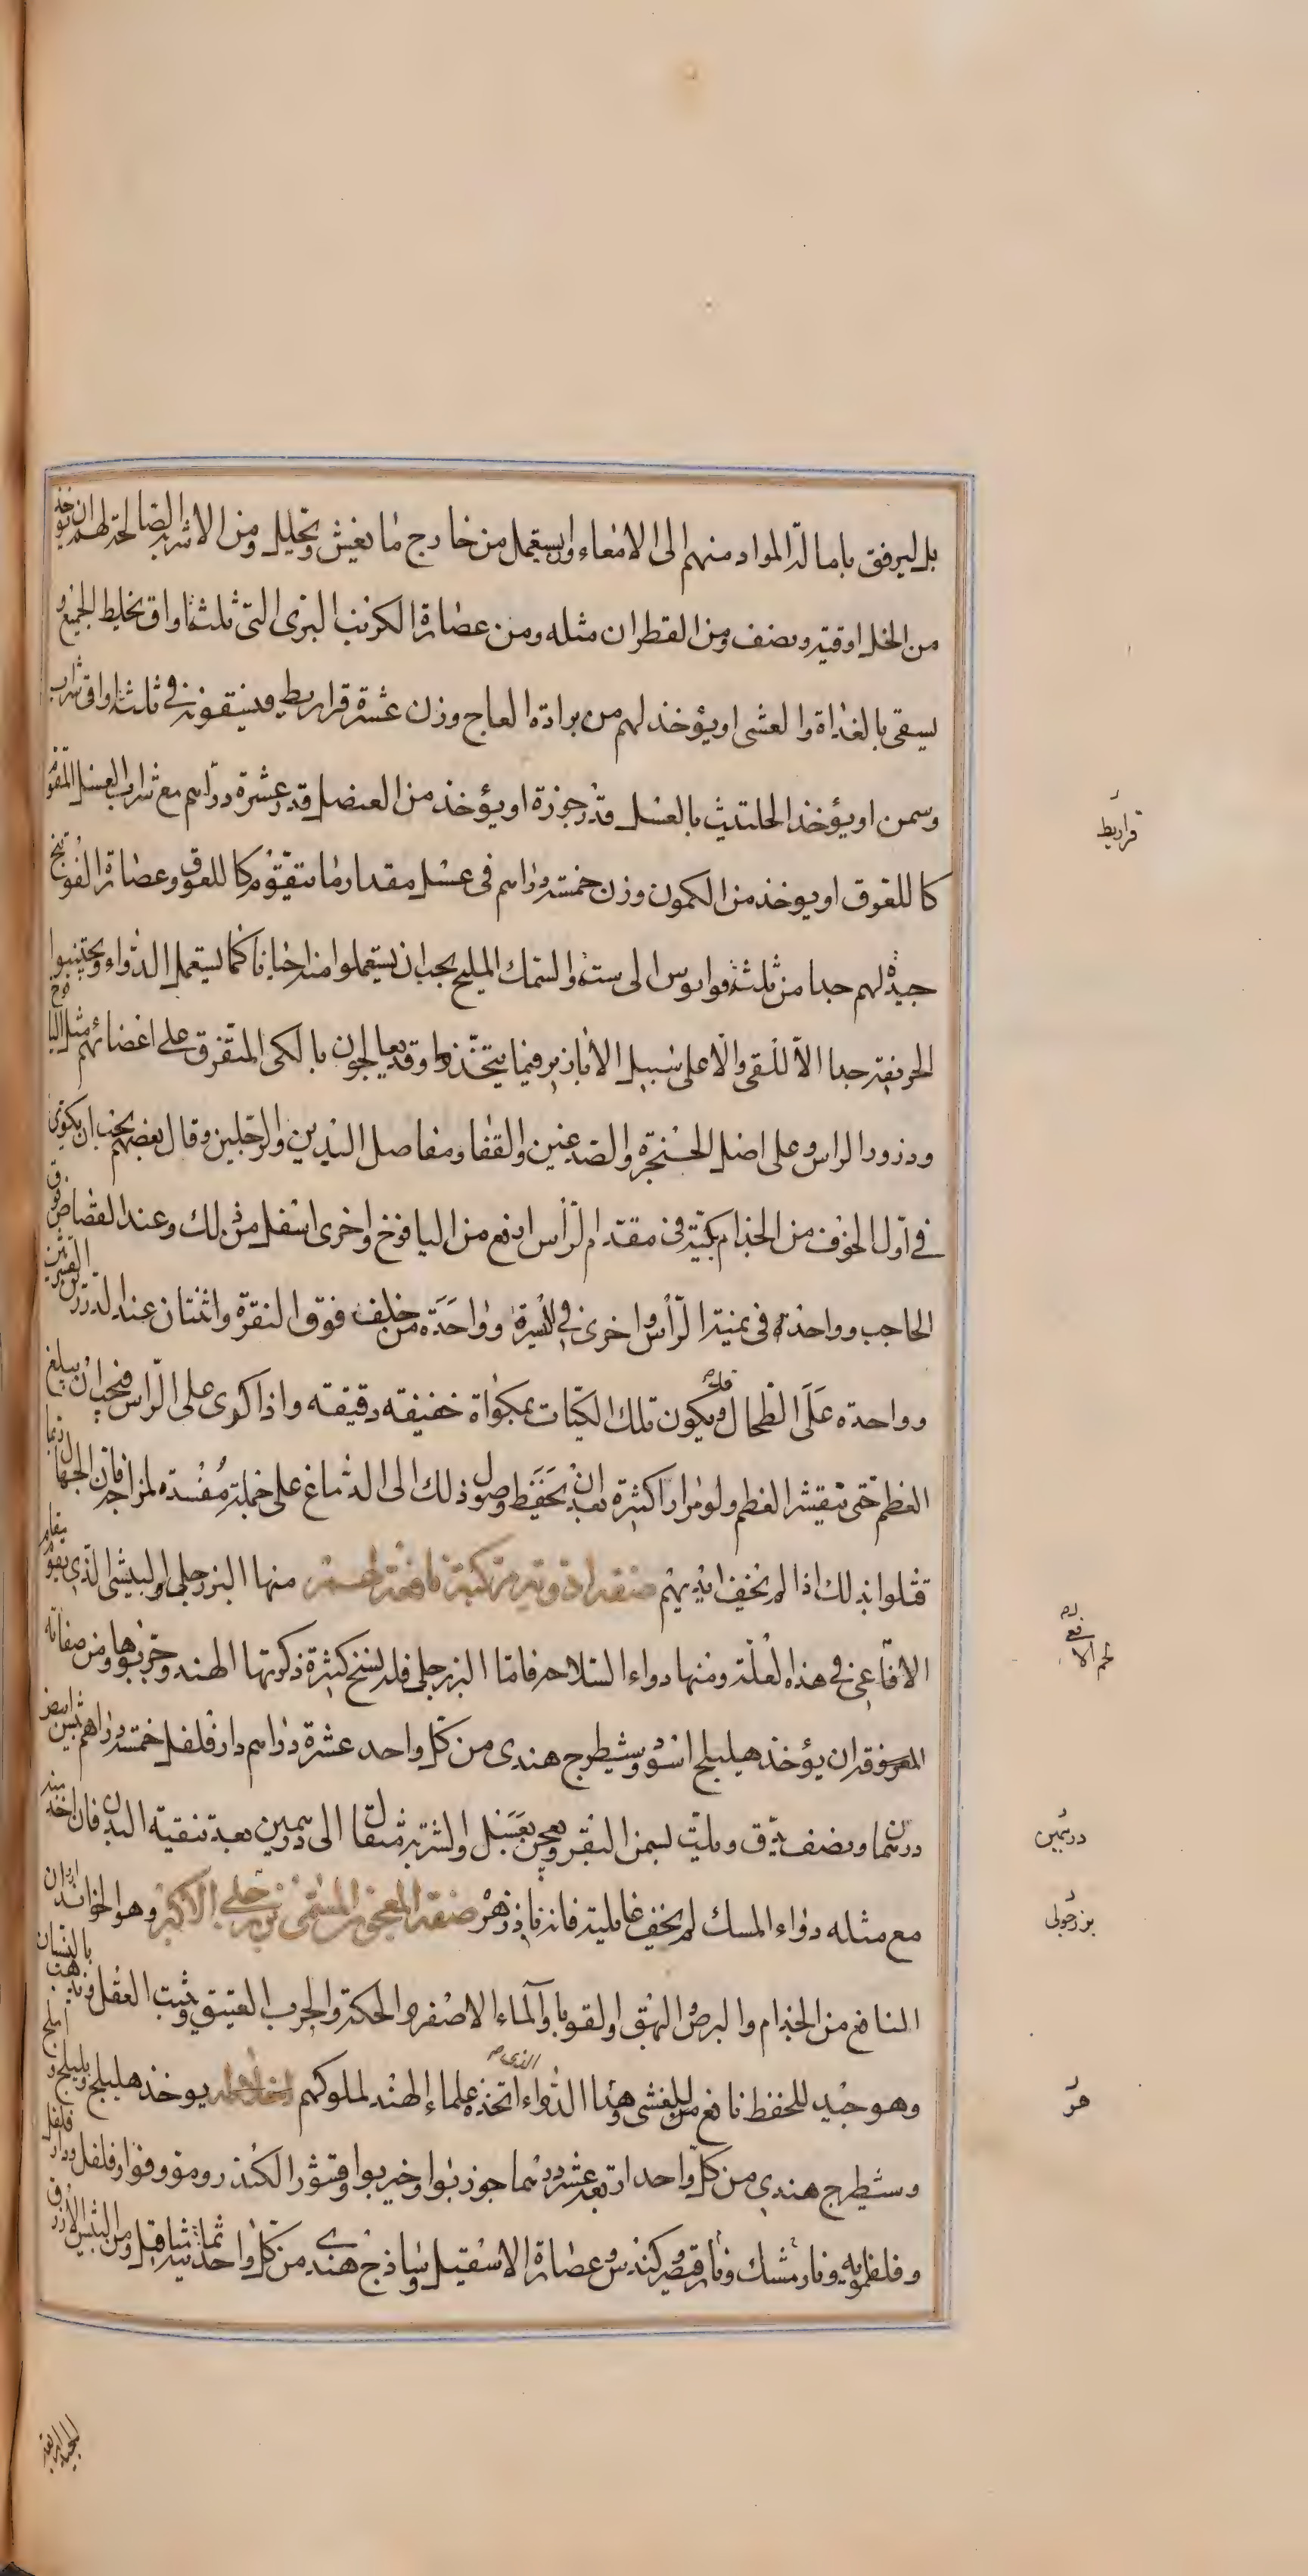 بل ليرفق بامالة المواد منهم الى الامعاء او يستعمل من خارج ما يغيش وتحليل ومن الاشربة الصالحة لهم ان يؤخذ
من الخل اوقية ونصف ومن القطران مثله ومن عصارة الكرنب البرى التى ثلثة اواق يخلط الجميع و
يسقى بالغداة والعشى او يؤخذ لهم من برادة العاج وزن عشرة قراريط فيسقونه فى ثلثة اواق شراب
وسمن او يؤخذ الحلتيث بالعسل قدر جوزة او يؤخذ من العنصل قدر عشرة دراسم مع شراب العسل المقوم
كا للعوق او يوخذ من الكمون وزن خمسة دراسم فى عسل مقدار ما يتقوم كا للعوق وعصارة الفوتنج
جيدة لهم جدا من ثلثة قوابوس الى ستة والسمك المليح يجب ان يستعملوا منه احيانا كما يستعمل الدواء ويجتنبوا
الحريفة جدا الا للقى والا على سبيل الابازير فيما يتخذوا وقد يعالجون بالكى المتفرق على اعضائهم مثل اليافوخ
ودزور الراس وعلى اصل الحنجرة والصدغين والقفا ومفاصل اليدين والرجلين وقال بعضهم يجب ان يكوى
فى اول الخوف من الجذام بكية فى مقدم الرأس ارفع من اليافوخ واخرى اسفل من ذلك وعند القصاص فوق
الحاجب وواحدة فى يمنة الرأس واخرى فى يسرة وواحدة من خلف فوق النقرة واثنتان عند الدرزين القشريين
وواحدة على الطحال ويكون تلك الكيات بمكواة خفيفه دقيقه واذا كوى على الراس فيجب ان يبلغ
العظم حتى يتقشر العظم ولو مرارا كثيرة بعد ان يحفظ وصول ذلك الى الدماغ على جملة مفسدة لمزاجه فان الجهال ربما
قتلوا بذلك اذا لم يخف ايديهم صفة ادوية مركبة نافعة لهم منها البزرجلى والبيشى الذى يقوم مقام
الافاعى فى هذه العلة ومنها دواء السلاحه فاما البزرجلى فله نسخ كثيرة ذكرتها الهند وجربوها ومن صفاته
المعروفة ان يؤخذ هيليلج اسود وشيطرج هندى من كل واحد عشرة دراسم دار فلفل خمسة دراهم بيش ابيض
درسما ونصف يدق ويلت بسمن البقر ويعجن بعسل والشربة مثقال الى درسمين بعد تنقية البدن فان اخذ منه
مع مثله دواء المسك لم يخف غايلته فانه فاذ زهر صفة المعجون المسمى بزرجلى الاكبر وهو الخوانديدان
النافع من الجذام والبرص والبهق والقوبا والماء الاصفر والحكة والجرب العتيق ويثبت العقل ويذهب بالنسيان
وهو جيد للحفظ نافع من الغشى وهذا الدواء الذى اتخذه علماء الهند لملوكهم اخلاطه يوخذ هليلج وبليلج و املج
وشيطرج هندى من كل واحد اربعة عشر درسما جوز بوا وخير بوا وقشور الكندر وموو وفوا وفلفل ودار فلفل
وفلفلمويه ونارمشك ونارقيصر وكندس وعصارة الاسقيل وساذج هندى من كل واحد ثمانية مثاقيل ومن البيش الازرق
قراريط
لحم الافعى
درسمين
بزرجولى
هر